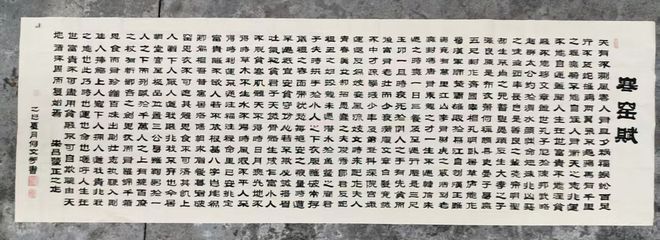 寒窑赋
天有不测风云人有旦夕祸福蜈蚣百足
行不及蛇雄鸡两翼飞不过鸦马有千里
之程无骑不能自往人有冲天之志非运
不能自通盖闻人生在世富贵不能淫贫
贱不能移文章盖世孔子厄于陈邦武略
超群太公钓于渭水颜渊命短殊非凶恶
之徒盗跖年长岂是善良之辈尧帝明圣
却生不肖之儿瞽叟愚顽反生大孝之子
张良原是布衣萧何称谓县吏晏子身无
五尺封作齐国宰相孔明卧居草庐能作
蜀汉军师楚霸虽雄败于乌江自刎汉王虽
弱竟有万里江山李广有射虎之威到老无
封冯唐有乘龙之才一生不遇韩信未
遇之时无一日三餐及至遇行腰悬三尺
玉印一旦时衰死于阴人之手有先贫而
后富有老壮而少衰满腹文章白发竟然
不中才疏学浅少年及第登科深院宫娥
运退反为妓妾风流妓女时来配作夫人
青春美女却招愚蠢之夫俊秀郎君反配
粗丑之妇蛟龙未遇潜水于鱼鳖之间君
子失时拱手于小人之下衣服虽破常存
仪礼之容面带忧愁每抱怀安之量时遭
不遇只宜安贫守份心若不欺必然扬眉
吐气初贫君子天然骨骼生成乍富小人
不脱贫寒肌体天不得时日月无光地不
得时草木不生水不得时风浪不平人不
得时利运不通注福注命里已安排定
富贵谁不欲人若不依根基八字岂能为
卿为相吾昔寓居洛阳朝求僧餐暮宿破
窑思衣不可遮其体思食不可济其饥上
人憎下人厌人道我贱非我不弃也今居
朝堂官至极品位置三公身虽鞠躬于一
人之下而列职于千万人之上有挞百僚
之杖有斩鄙吝之剑思衣而有罗锦千箱
思食而有珍馐百味出则壮士执鞭入则
佳人捧觞上人宠下人拥人道我贵非我
之能也此乃时也运也命也嗟呼人生在
世富贵不可尽用贫贱不可自欺听由天
地循环周而复始焉 宋吕蒙正之文
乙巳夏月何文 书